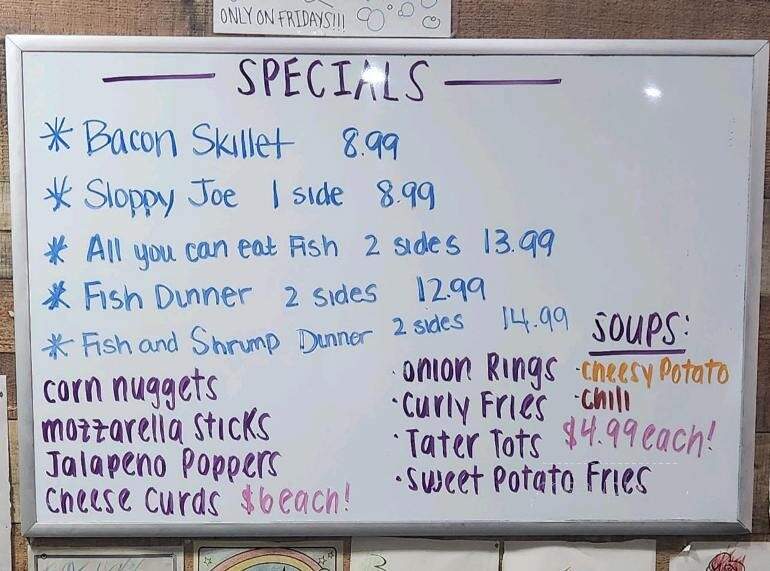 ONLY ON FRIDAYS!!!
SPECIALS
* Bacon Skillet 8.99
* Sloppy Joe 1 side 8.99
* All you can eat Fish 2 sides 13.99
* Fish Dinner 2 sides 12.99
* Fish and Shrimp Dinner 2 sides 14.99
corn nuggets
mozzarella sticks
Jalapeno Poppers
cheese curds $6 each!
· onion Rings
· curly Fries
· Tater Tots $4.99 each!
· sweet Potato Fries
SOUPS:
· cheesy Potato
· chili